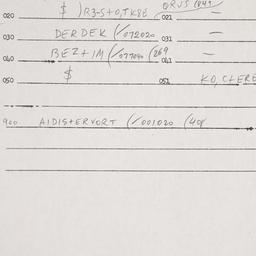 020 $ )R3-S+0,TK8E 021 —
030 DERDEK (/072020 031 —
040 BEZ+IM (/077040 (269 041 —
050 $ 051 K0,C+ERE
900 AIDISTERVORT (/001020 (408